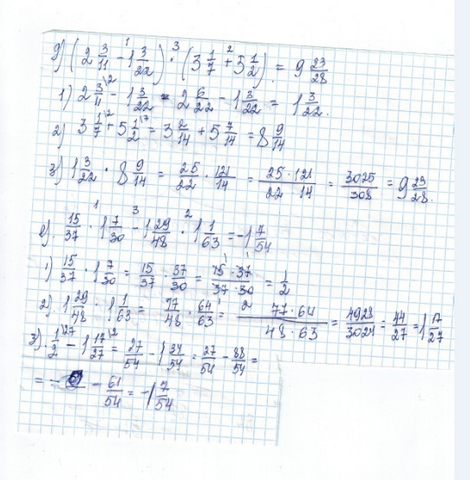 д) (2 3/11 - 1 3/22) · (3 1/7 + 5 1/2) = 9 23/28
1) 2 3/11 - 1 3/22 = 2 6/22 - 1 3/22 = 1 3/22.
2) 3 1/7 + 5 1/2 = 3 2/14 + 5 7/14 = 8 9/14
3) 1 3/22 · 8 9/14 = 25/22 · 121/14 = 25·121/22·14 = 3025/308 = 9 23/28.
е) 15/37 · 1 7/30 - 1 29/48 · 1 1/63 = -1 7/54
1) 15/37 · 1 7/30 = 15/37 · 37/30 = 15·37/37·30 = 1/2
2) 1 29/48 · 1 1/63 = 77/48 · 64/63 = 77·64/48·63 = 4928/3024 = 44/27 = 1 17/27
3) 1/2 - 1 17/27 = 27/54 - 1 34/54 = 27/54 - 88/54 =
= - 61/54 = -1 7/54